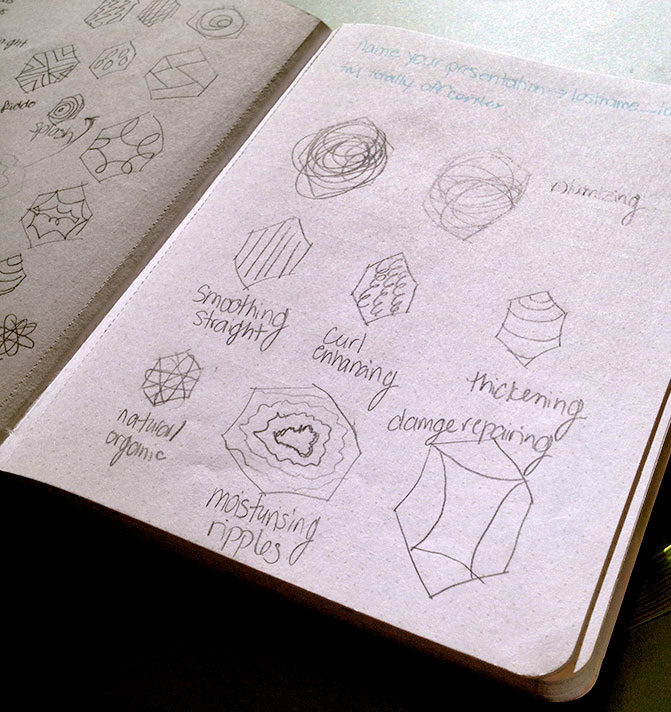 splash
name your presentation -> lastname_
smoothing
straight
curl
enhancing
thickening
natural
organic
damge repairing
moistursing
ripples